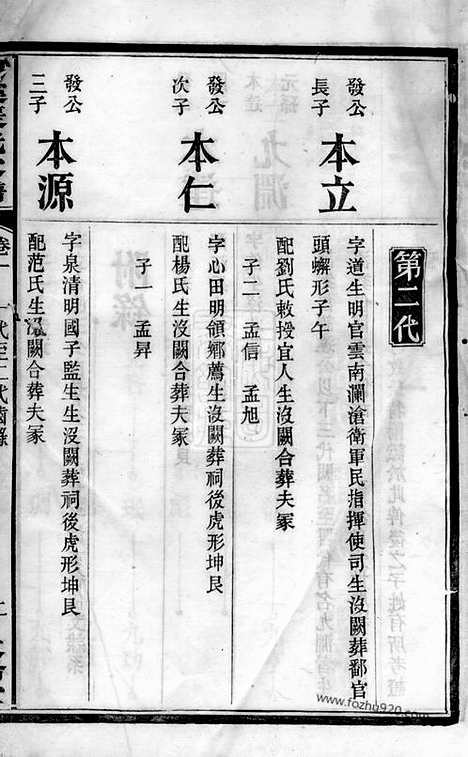 第二代
發公
長子
本立
字道生明官雲南瀾滄衛軍民指揮使司生沒闕葬鄱官
頭蠏形子午
配劉氏敕授宜人生沒闕合葬夫冢
子二 孟信 孟旭
發公
次子
本仁
字心田明領鄉薦生沒闕葬祠後虎形坤艮
配楊氏生沒闕合葬夫冢
子一 孟昇
發公
三子
本源
字泉清明國子監生生沒闕葬祠後虎形坤艮
配范氏生沒闕合葬夫冢
卷一
www.fozhu920.com